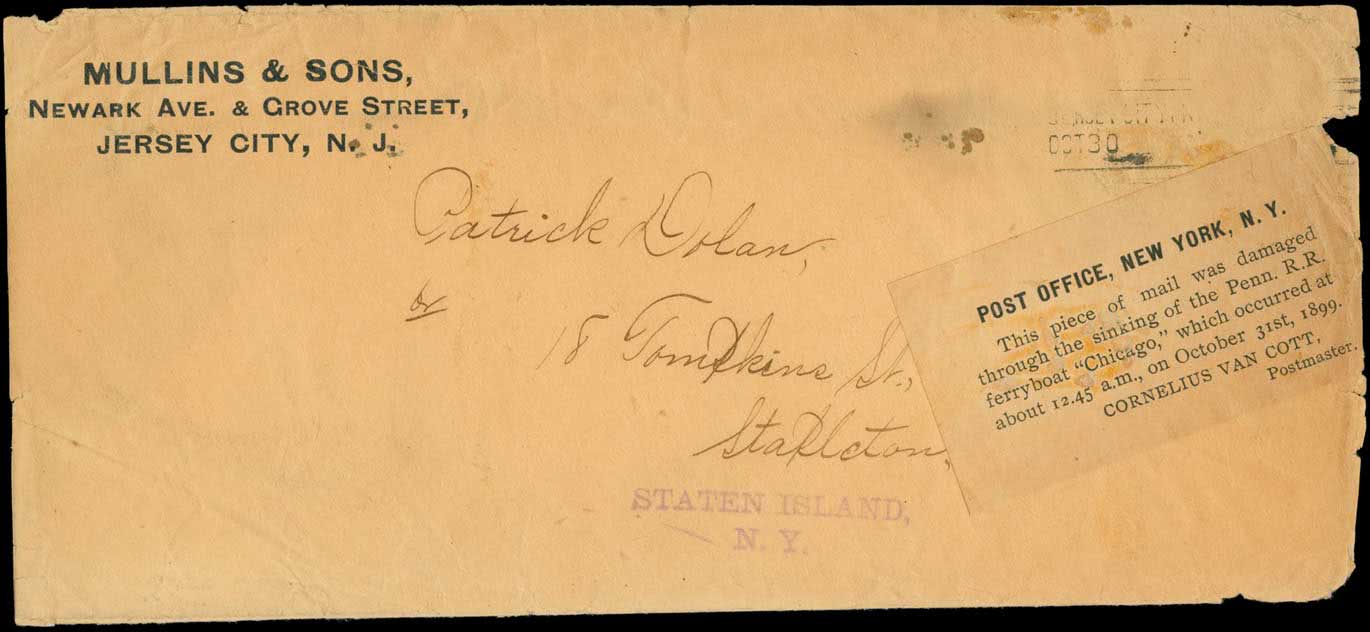 MULLINS & SONS,
NEWARK AVE. & GROVE STREET,
JERSEY CITY, N. J.
OCT 30
Patrick Dolan,
18 Tompkins St.,
Stapleton,
STATEN ISLAND,
N. Y.
POST OFFICE, NEW YORK, N. Y.
This piece of mail was damaged
through the sinking of the Penn. R.R.
ferryboat "Chicago," which occurred at
about 12.45 a.m., on October 31st, 1899.
CORNELIUS VAN COTT,
Postmaster.